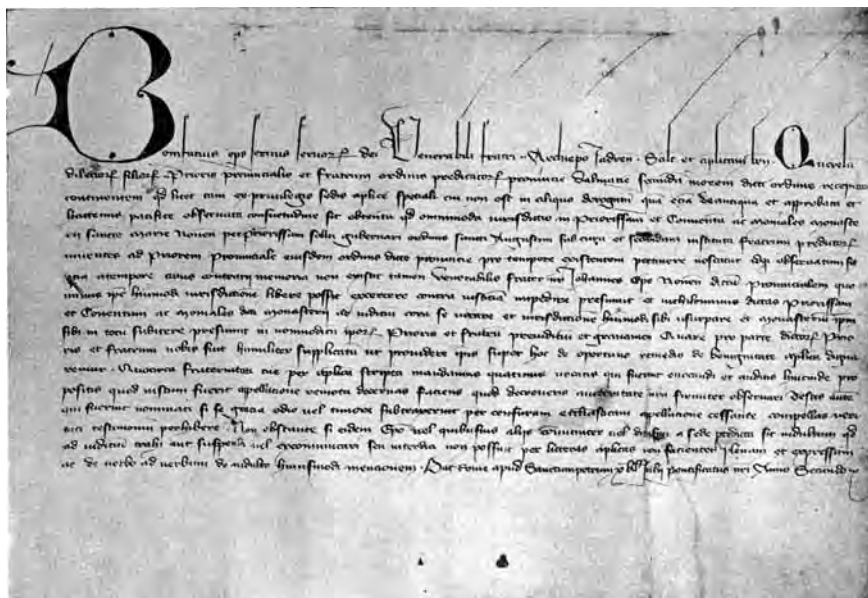 Bonifatius eps servus servorꝝ dei Venerabili fratri Archiepo Jadren Salt et aplicam ben Querela
dilectorꝝ filiorꝝ Prioris provincialis et fratrum ordinis predicatorꝝ provincie Dalmatie secundum morem dicti ordinis recepimus
continentem qd licet tam ex privilegio sedis aplice speciali cui non est in aliquo derogatum qua etia de antiqua et approbata et
hactenus pacifice observata consuetudine sit obtentu qd omnimoda iurisdictio in Priorissam et Conventu ac moniales monaste
rii sancte Marie Nonen per Priorissam soliti gubernari ordinis sancti Augustini sub cura et secundum instituta fratrum predicatorꝝ
viventes ad Priorem Provinciale eiusdem ordinis dicte provincie pro tempore existentem pertinere noscatur sitqꝫ observatum sic
etia a tempore cuius contrarii memoria non existit tamen Venerabilis frater nr Johannes Eps Nonen dictu Provincialem quo
minus ipe huiusmodi iurisdictione libere possit excercere contra iusticia impedire presumit et nichilominus dictas Priorissam
et Conventum ac moniales dicti monasterii ad iudiciu cora se vocare et iurisdictione huiusmodi sibi usurpare et monasteriu ipm
sibi in totu subicere presumit in non modicu iporꝝ Prioris et fratru preiudiciu et gravamen Quare pro parte dictorꝝ Prio
ris et fratrum nobis fuit humiliter supplicatu ut providere ipis super hoc de oportuno remedio de benignitate aplica digna
remur Quocirca fraternitati tue per aplica scripta mandamus quatinus vocatis qui fuerint evocandi et auditis hincinde pro
positis quod iustum fuerit appellatione remota decernas faciens quod decreveris auctoritate nra firmiter observari Testes aute
qui fuerint nominati si se gratia odio vel timore subtraxerint per censuram ecclesiasticam appellatione cessante compellas veri
tati testimoniu perhibere Non obstante si eidem Epo vel quibusvis aliis communiter vel divisim a sede predicta sit indultum qd
ad iudiciu trahi aut suspendi vel excommunicari seu interdici non possint per litteras aplicas non facientes plenam et expressam
ac de verbo ad verbum de indulto huiusmodi mencionem Dat Rome apud Sanctumpetrum Julii pontificatus nri Anno Secundo